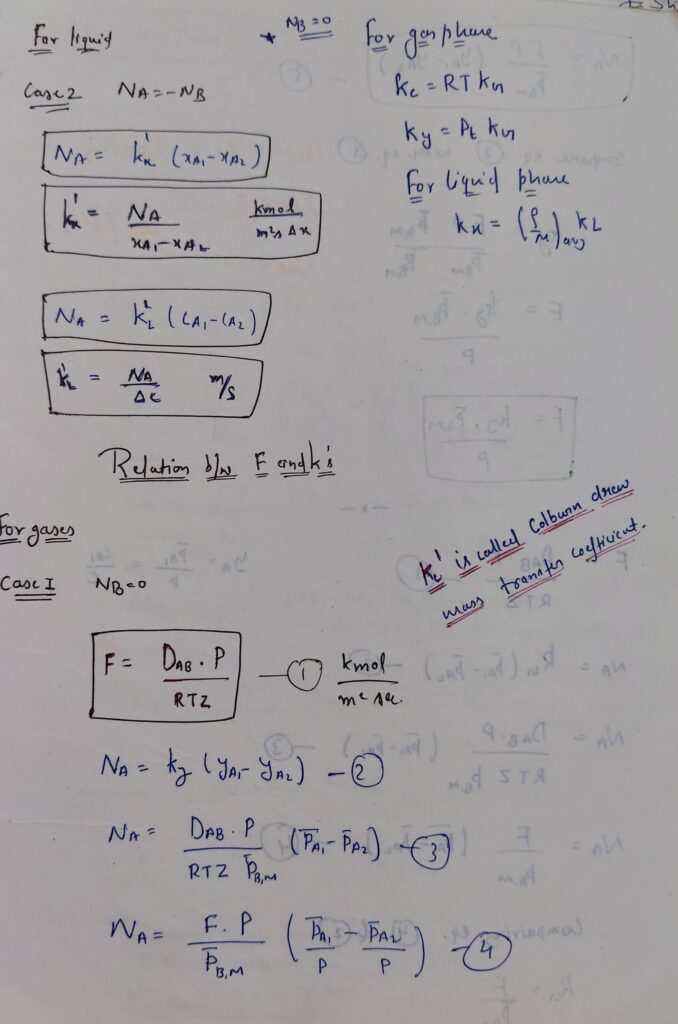 For liquid
Case 2 NA = -NB
NA = kx' (xA1 - xA2)
kx' = NA / xA1 - xA2 kmol / m²s Δx
NA = kL' (CA1 - CA2)
kL' = NA / ΔC m/s
* NB = 0
For gas phase
kc = RT kG
ky = Pt kG
For liquid phase
kx = (ρ/M)avg kL
Relation b/w F and k's
For gases
Case I NB = 0
kc' is called Colburn drew
mass transfer coefficient.
F = DAB . P / RTZ — ① kmol / m² sec.
NA = ky (yA1 - yA2) — ②
NA = DAB . P / RTZ P̄B,M (P̄A1 - P̄A2) — ③
NA = F . P / P̄B,M (P̄A1 / P - P̄A2 / P) — ④